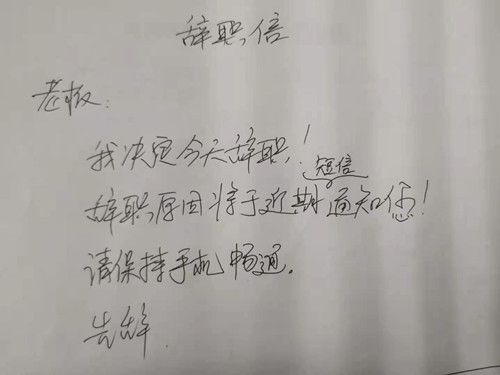 辞职信
老板:
我决定今天辞职!
辞职原因将于近期短信通知您!
请保持手机畅通.
告辞.